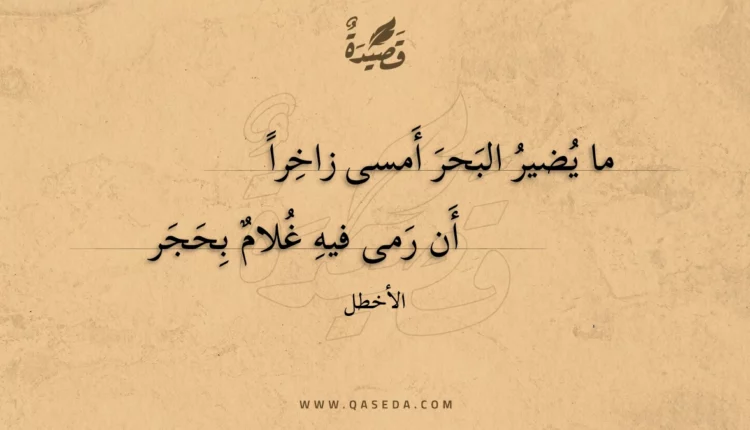 قَصِيدَةٌ
ما يُضيرُ البَحرَ أَمسى زاخِراً
أَن رَمى فيهِ غُلامٌ بِحَجَر
الأخطل
WWW.QASEDA.COM